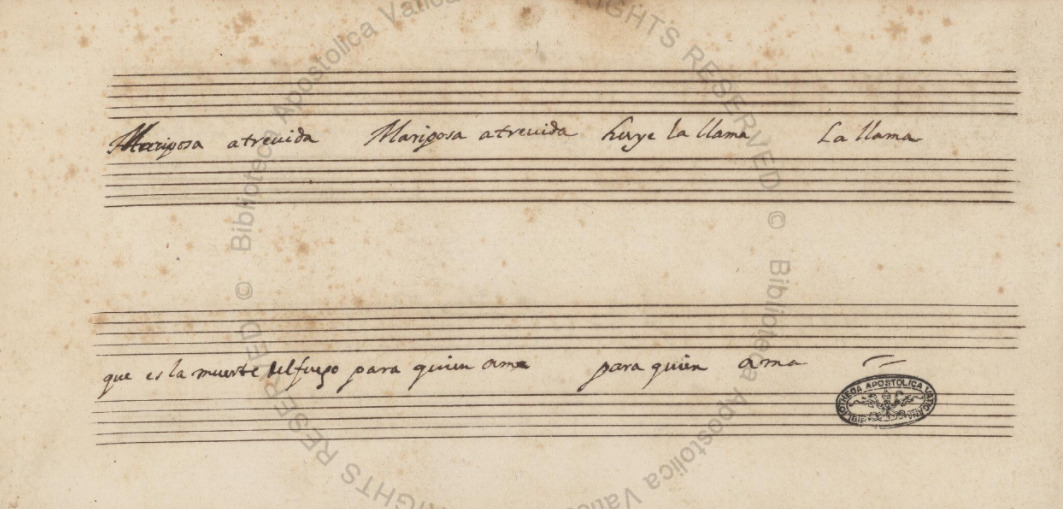 Mariposa atreuida Mariposa atreuida huye la llama La llama
que es la muerte el fuego para quien ama para quien ama
BIBLIOTHECA APOSTOLICA VATICANA
© Biblioteca Apostolica Vaticana
RIGHTS RESERVED
© Biblioteca Apostolica Vaticana
RIGHTS RESERVED